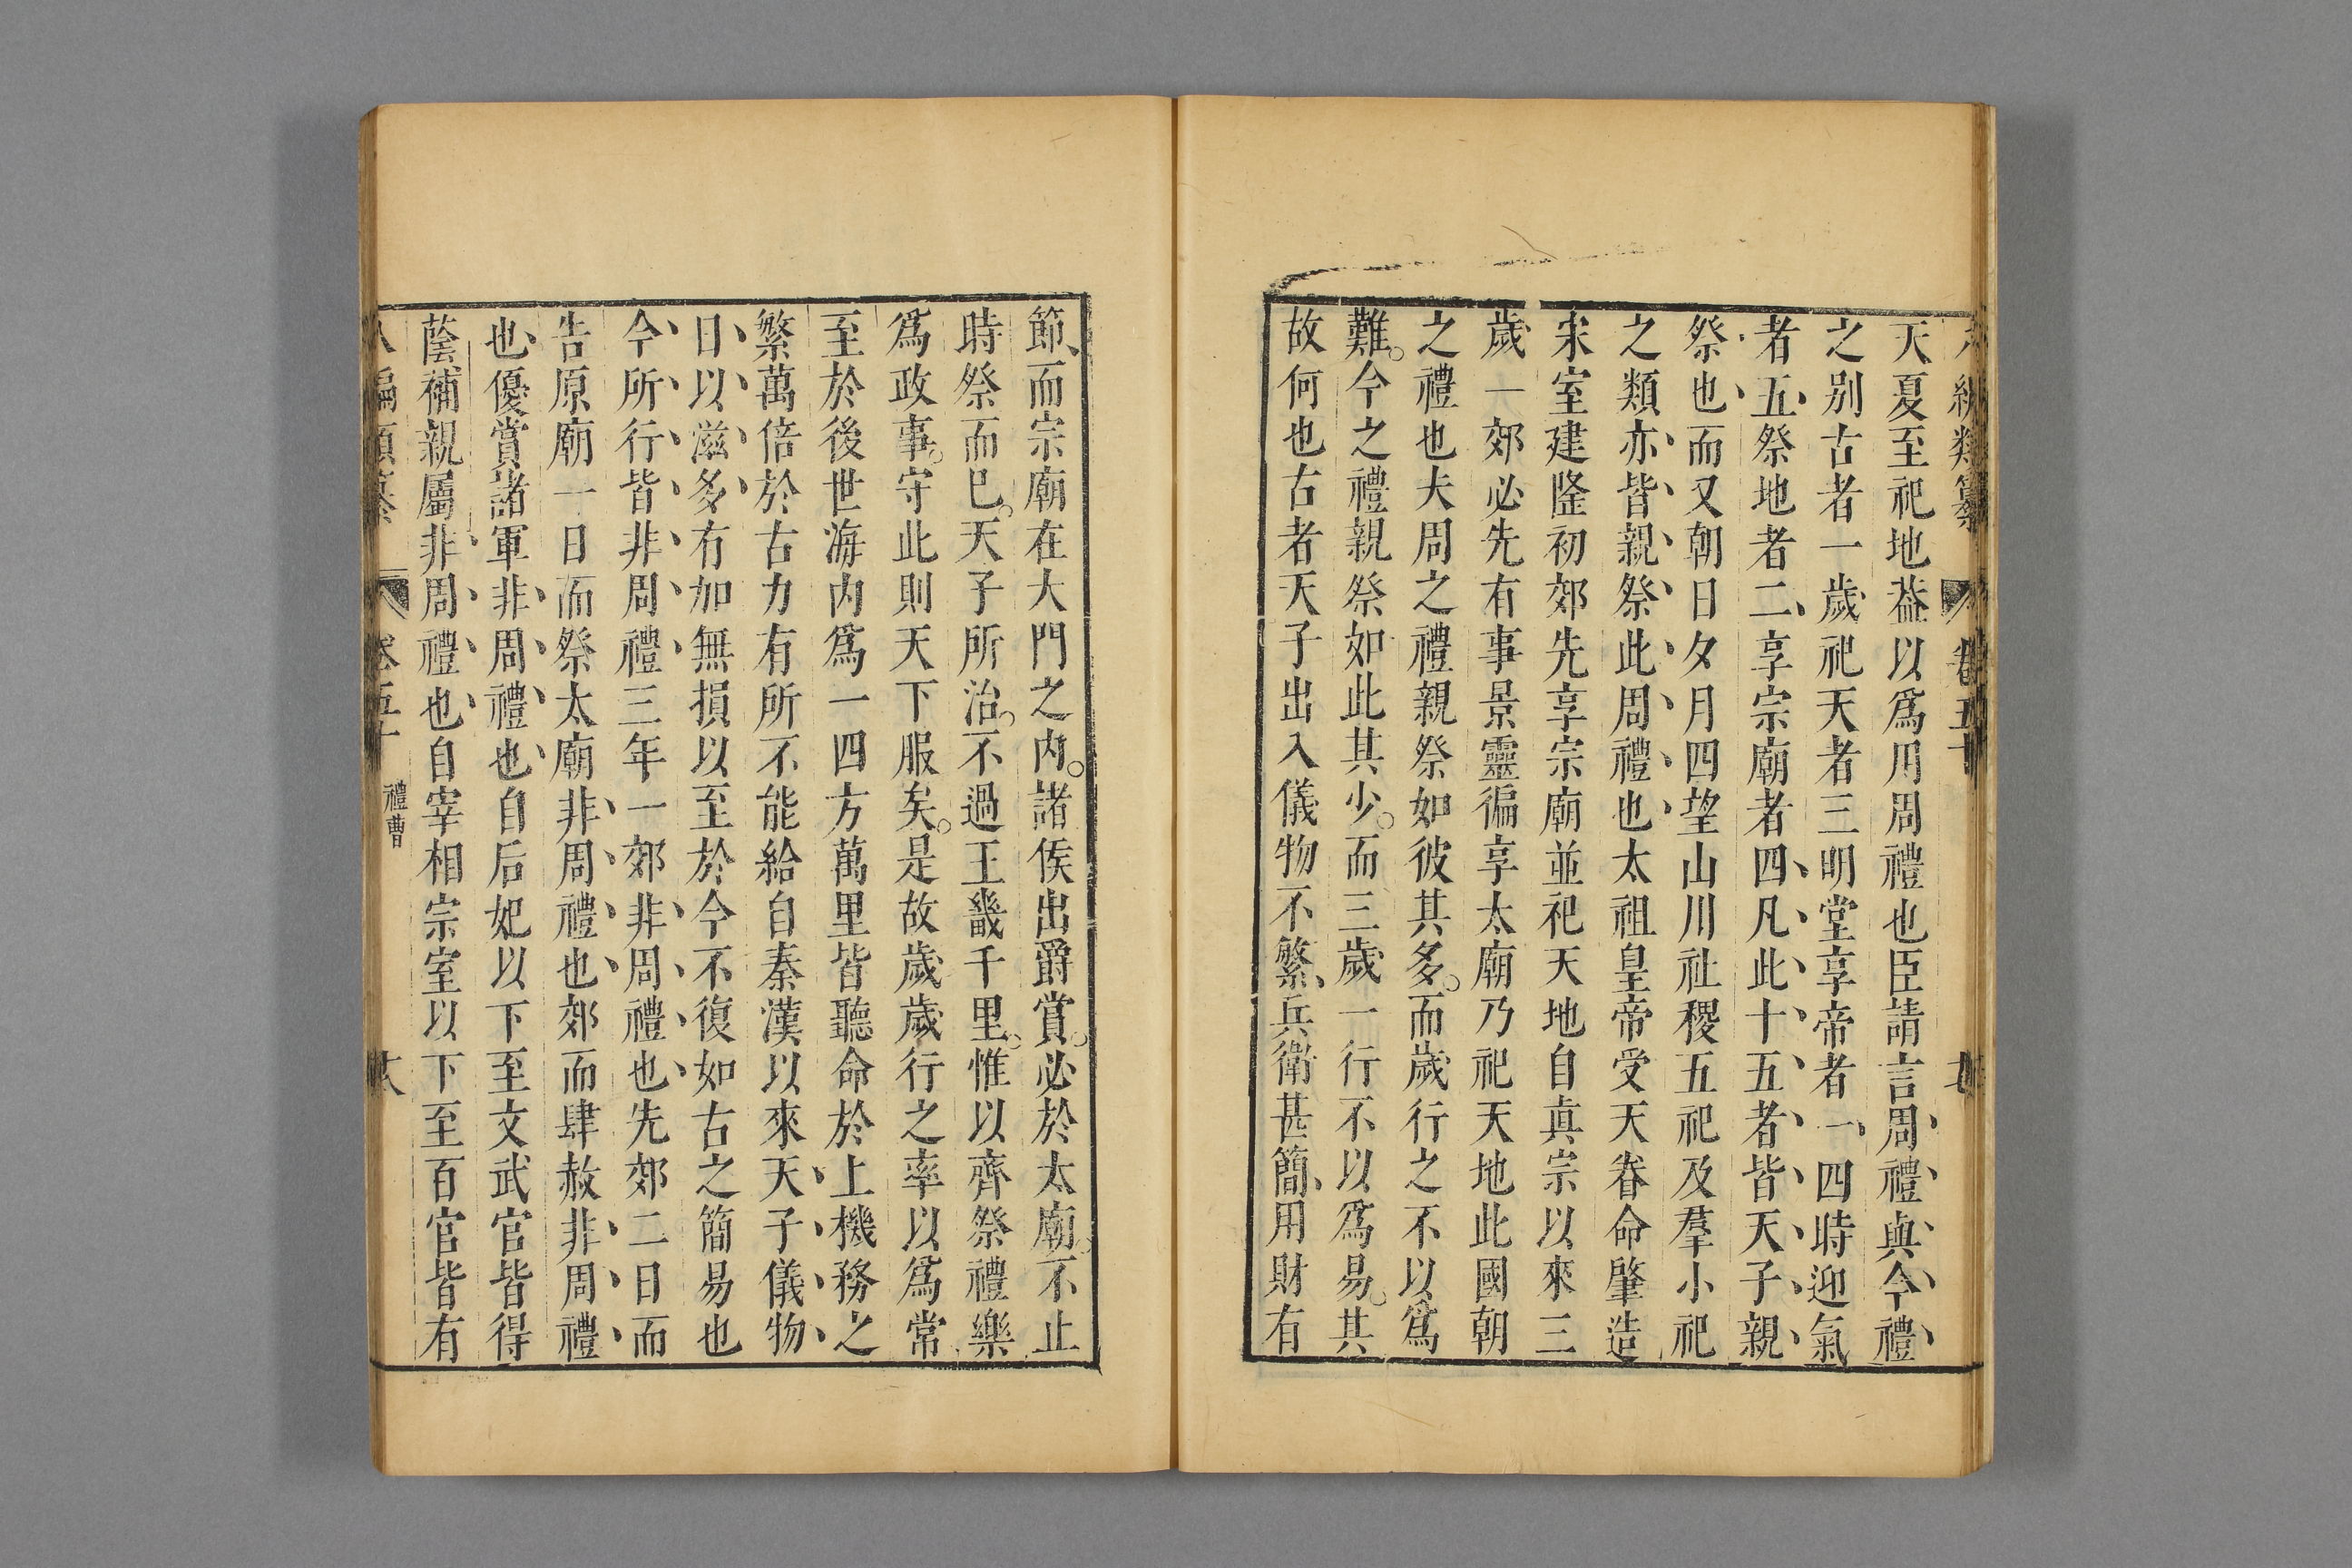 天夏至祀地葢以爲用周禮也臣請言周禮與今禮
之別古者一歲祀天者三明堂享帝者一四時迎氣
者五祭地者二享宗廟者四凡此十五者皆天子親
祭也而又朝日夕月四望山川社稷五祀及羣小祀
之類亦皆親祭此周禮也太祖皇帝受天眷命肇造
宋室建隆初郊先享宗廟並祀天地自眞宗以來三
歲一郊必先有事景靈徧享太廟乃祀天地此國朝
之禮也夫周之禮親祭如彼其多而歲行之不以爲
難今之禮親祭如此其少而三歲一行不以爲易其
故何也古者天子出入儀物不繁兵衛甚簡用財有
節而宗廟在大門之內諸侯出爵賞必於太廟不止
時祭而已天子所治不過王畿千里惟以齊祭禮樂
爲政事守此則天下服矣是故歲歲行之率以爲常
至於後世海內爲一四方萬里皆聽命於上機務之
繁萬倍於古力有所不能給自秦漢以來天子儀物
日以滋多有加無損以至於今不復如古之簡易也
今所行皆非周禮三年一郊非周禮也先郊二日而
告原廟一日而祭太廟非周禮也郊而肆赦非周禮
也優賞諸軍非周禮也自后妃以下至文武官皆得
蔭補親屬非周禮也自宰相宗室以下至百官皆有
八編類纂 卷五十 禮曹